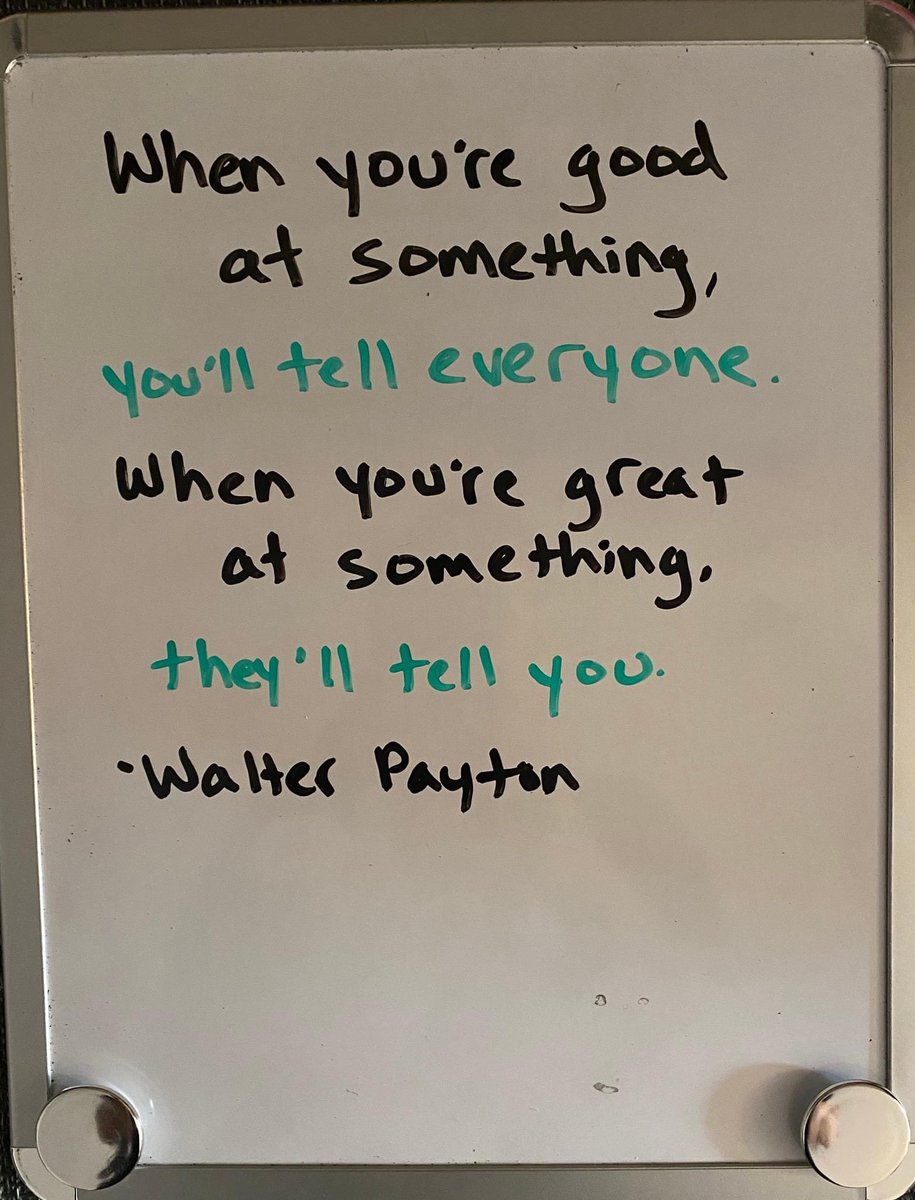 When you're good
at something,
you'll tell everyone.
When you're great
at something,
they'll tell you.
·Walter Payton